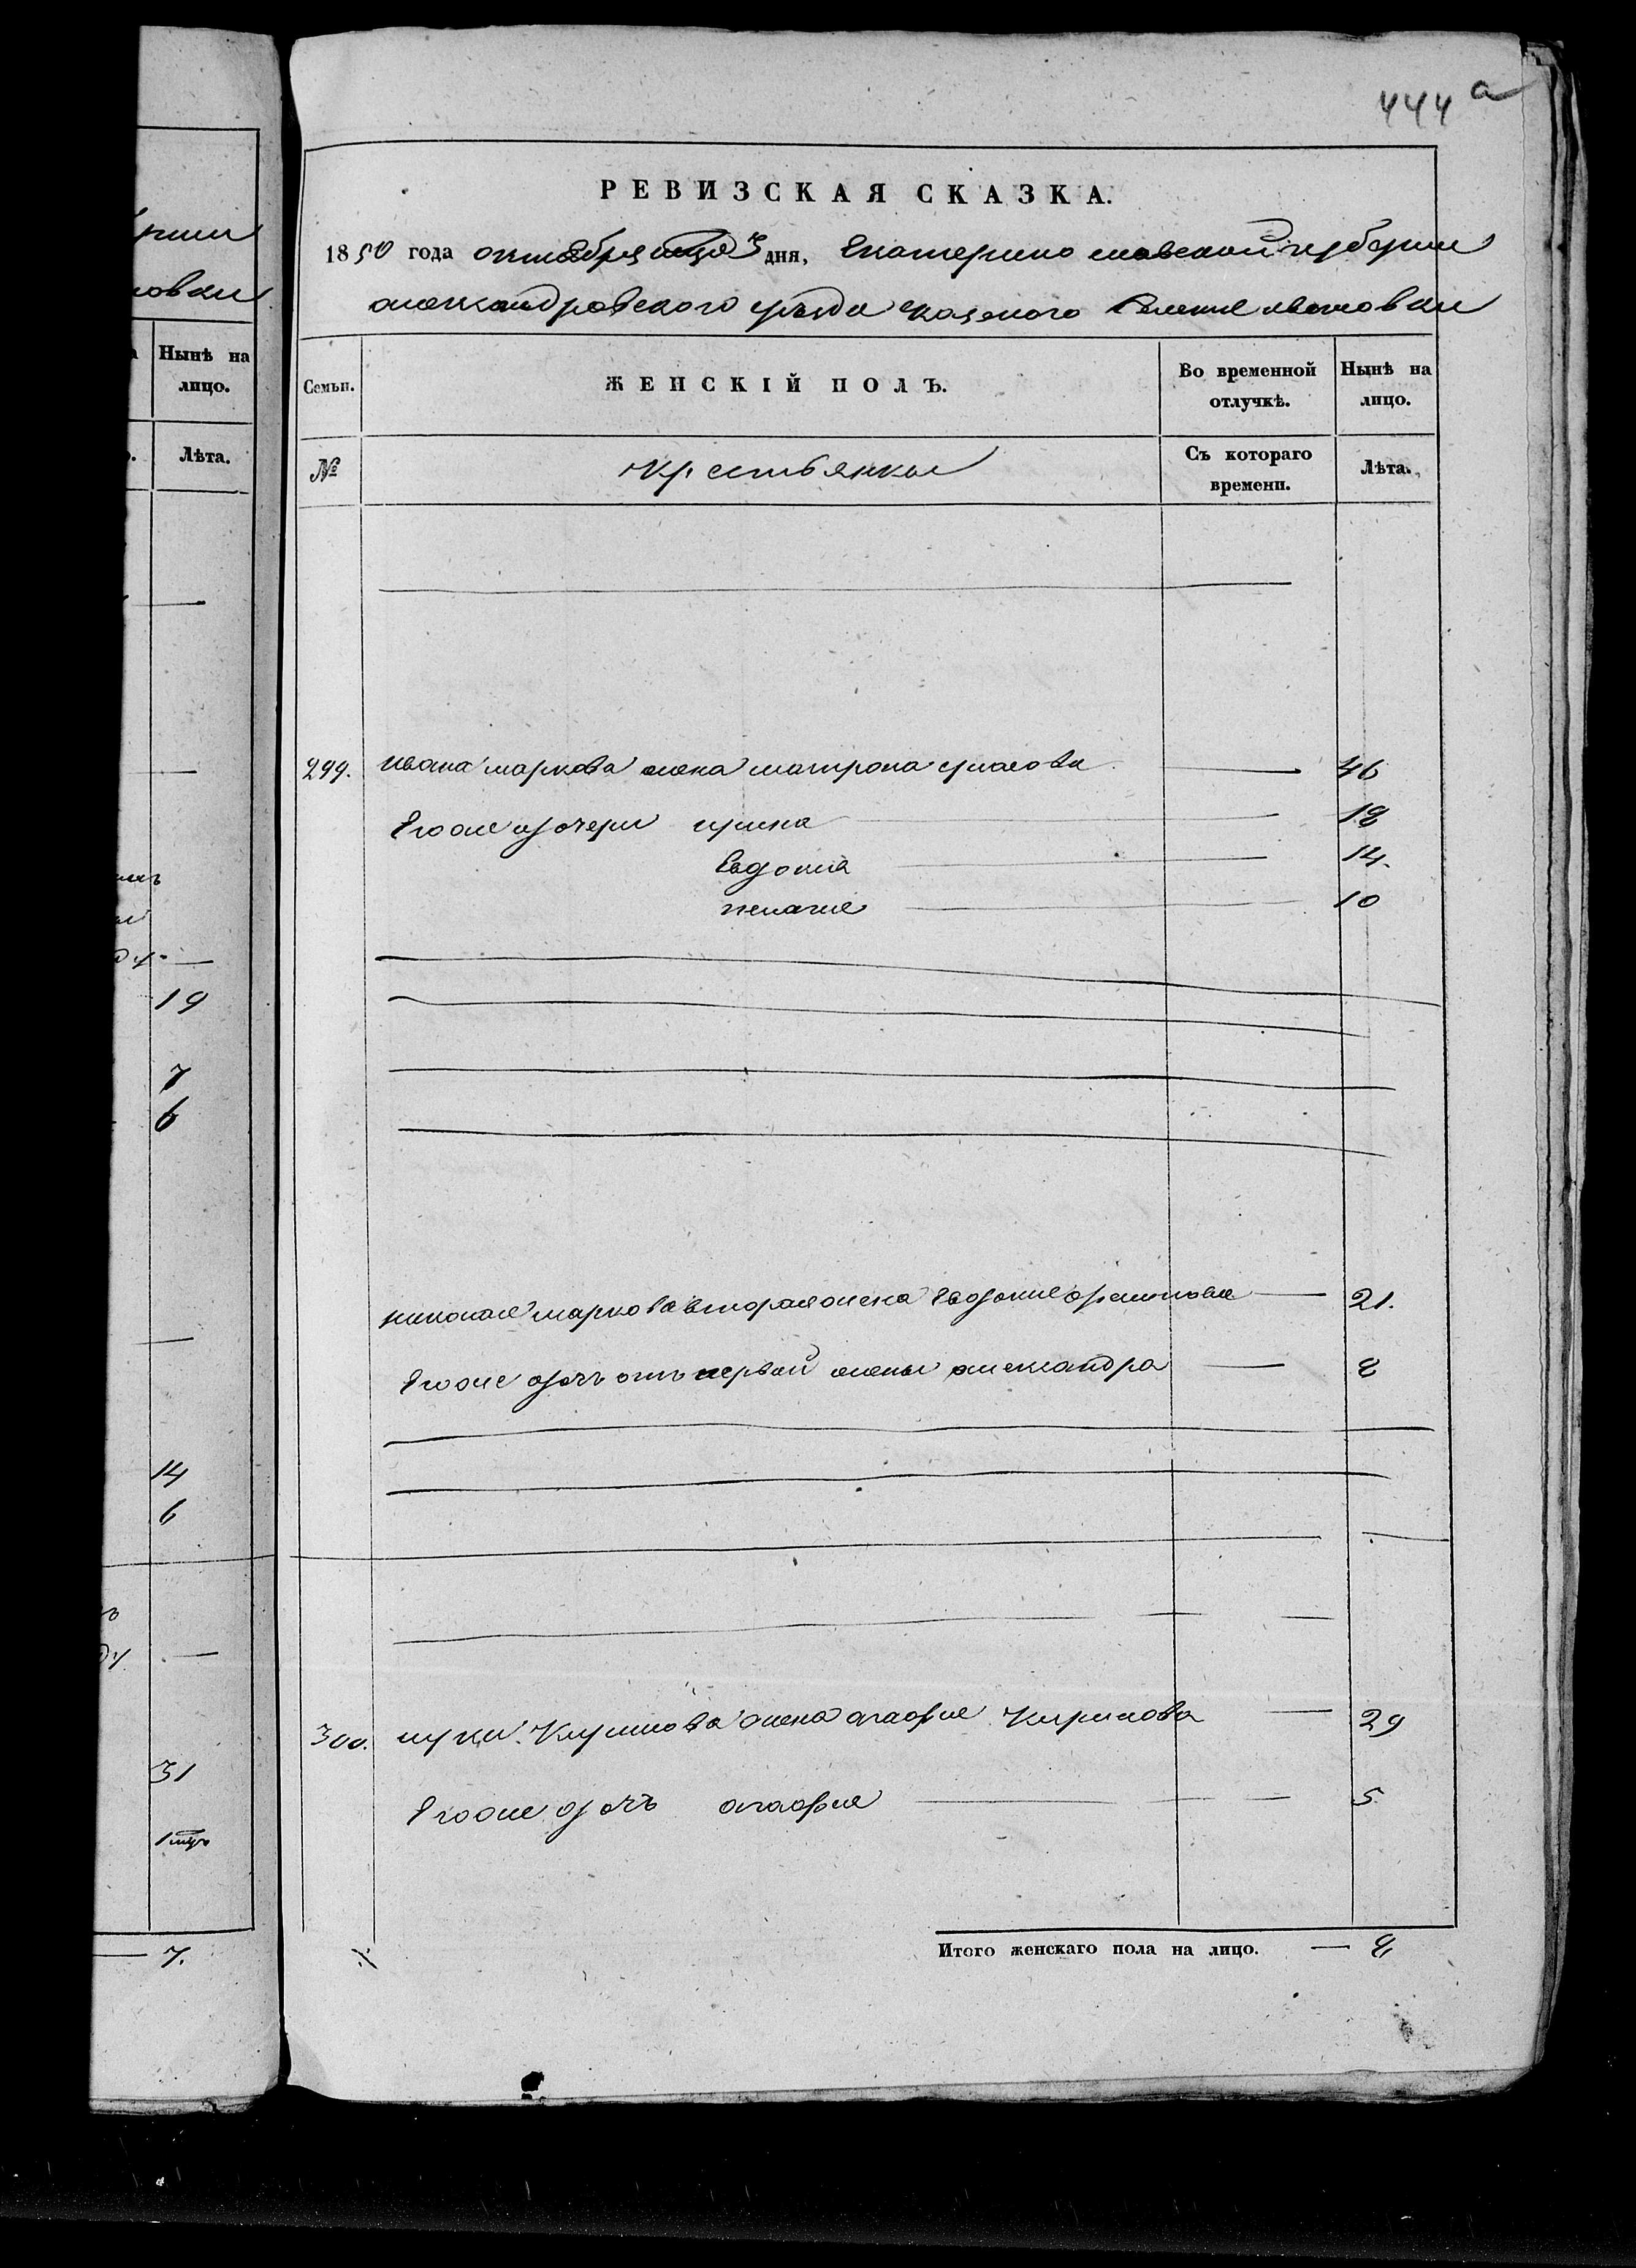 444 а
рніи
новки
Нынѣ на
лицо.
Лѣта.
19
7
6
14
6
31
1 мцъ
7.
РЕВИЗСКАЯ СКАЗКА.
1850 года октября дня, Екатеринославской губерніи
александровского уѣзда казеного селения
Семьи.
ЖЕНСКІЙ ПОЛЪ.
Во временной отлучкѣ.
Нынѣ на лицо.
№
крестьянки
Съ котораго времени.
Лѣта.
299. ивана маркова жена матрона — 46
Егоже дочери ирина — 18
Евдокия — 14.
пелагия — 10
николая маркова вторая жена Евдокия — 21.
Егоже дочь отъ первой жены александра — 8
300. луки Климова жена агафия Кирилова — 29
Егоже дочь агафия — 5
Итого женскаго пола на лицо. — 8